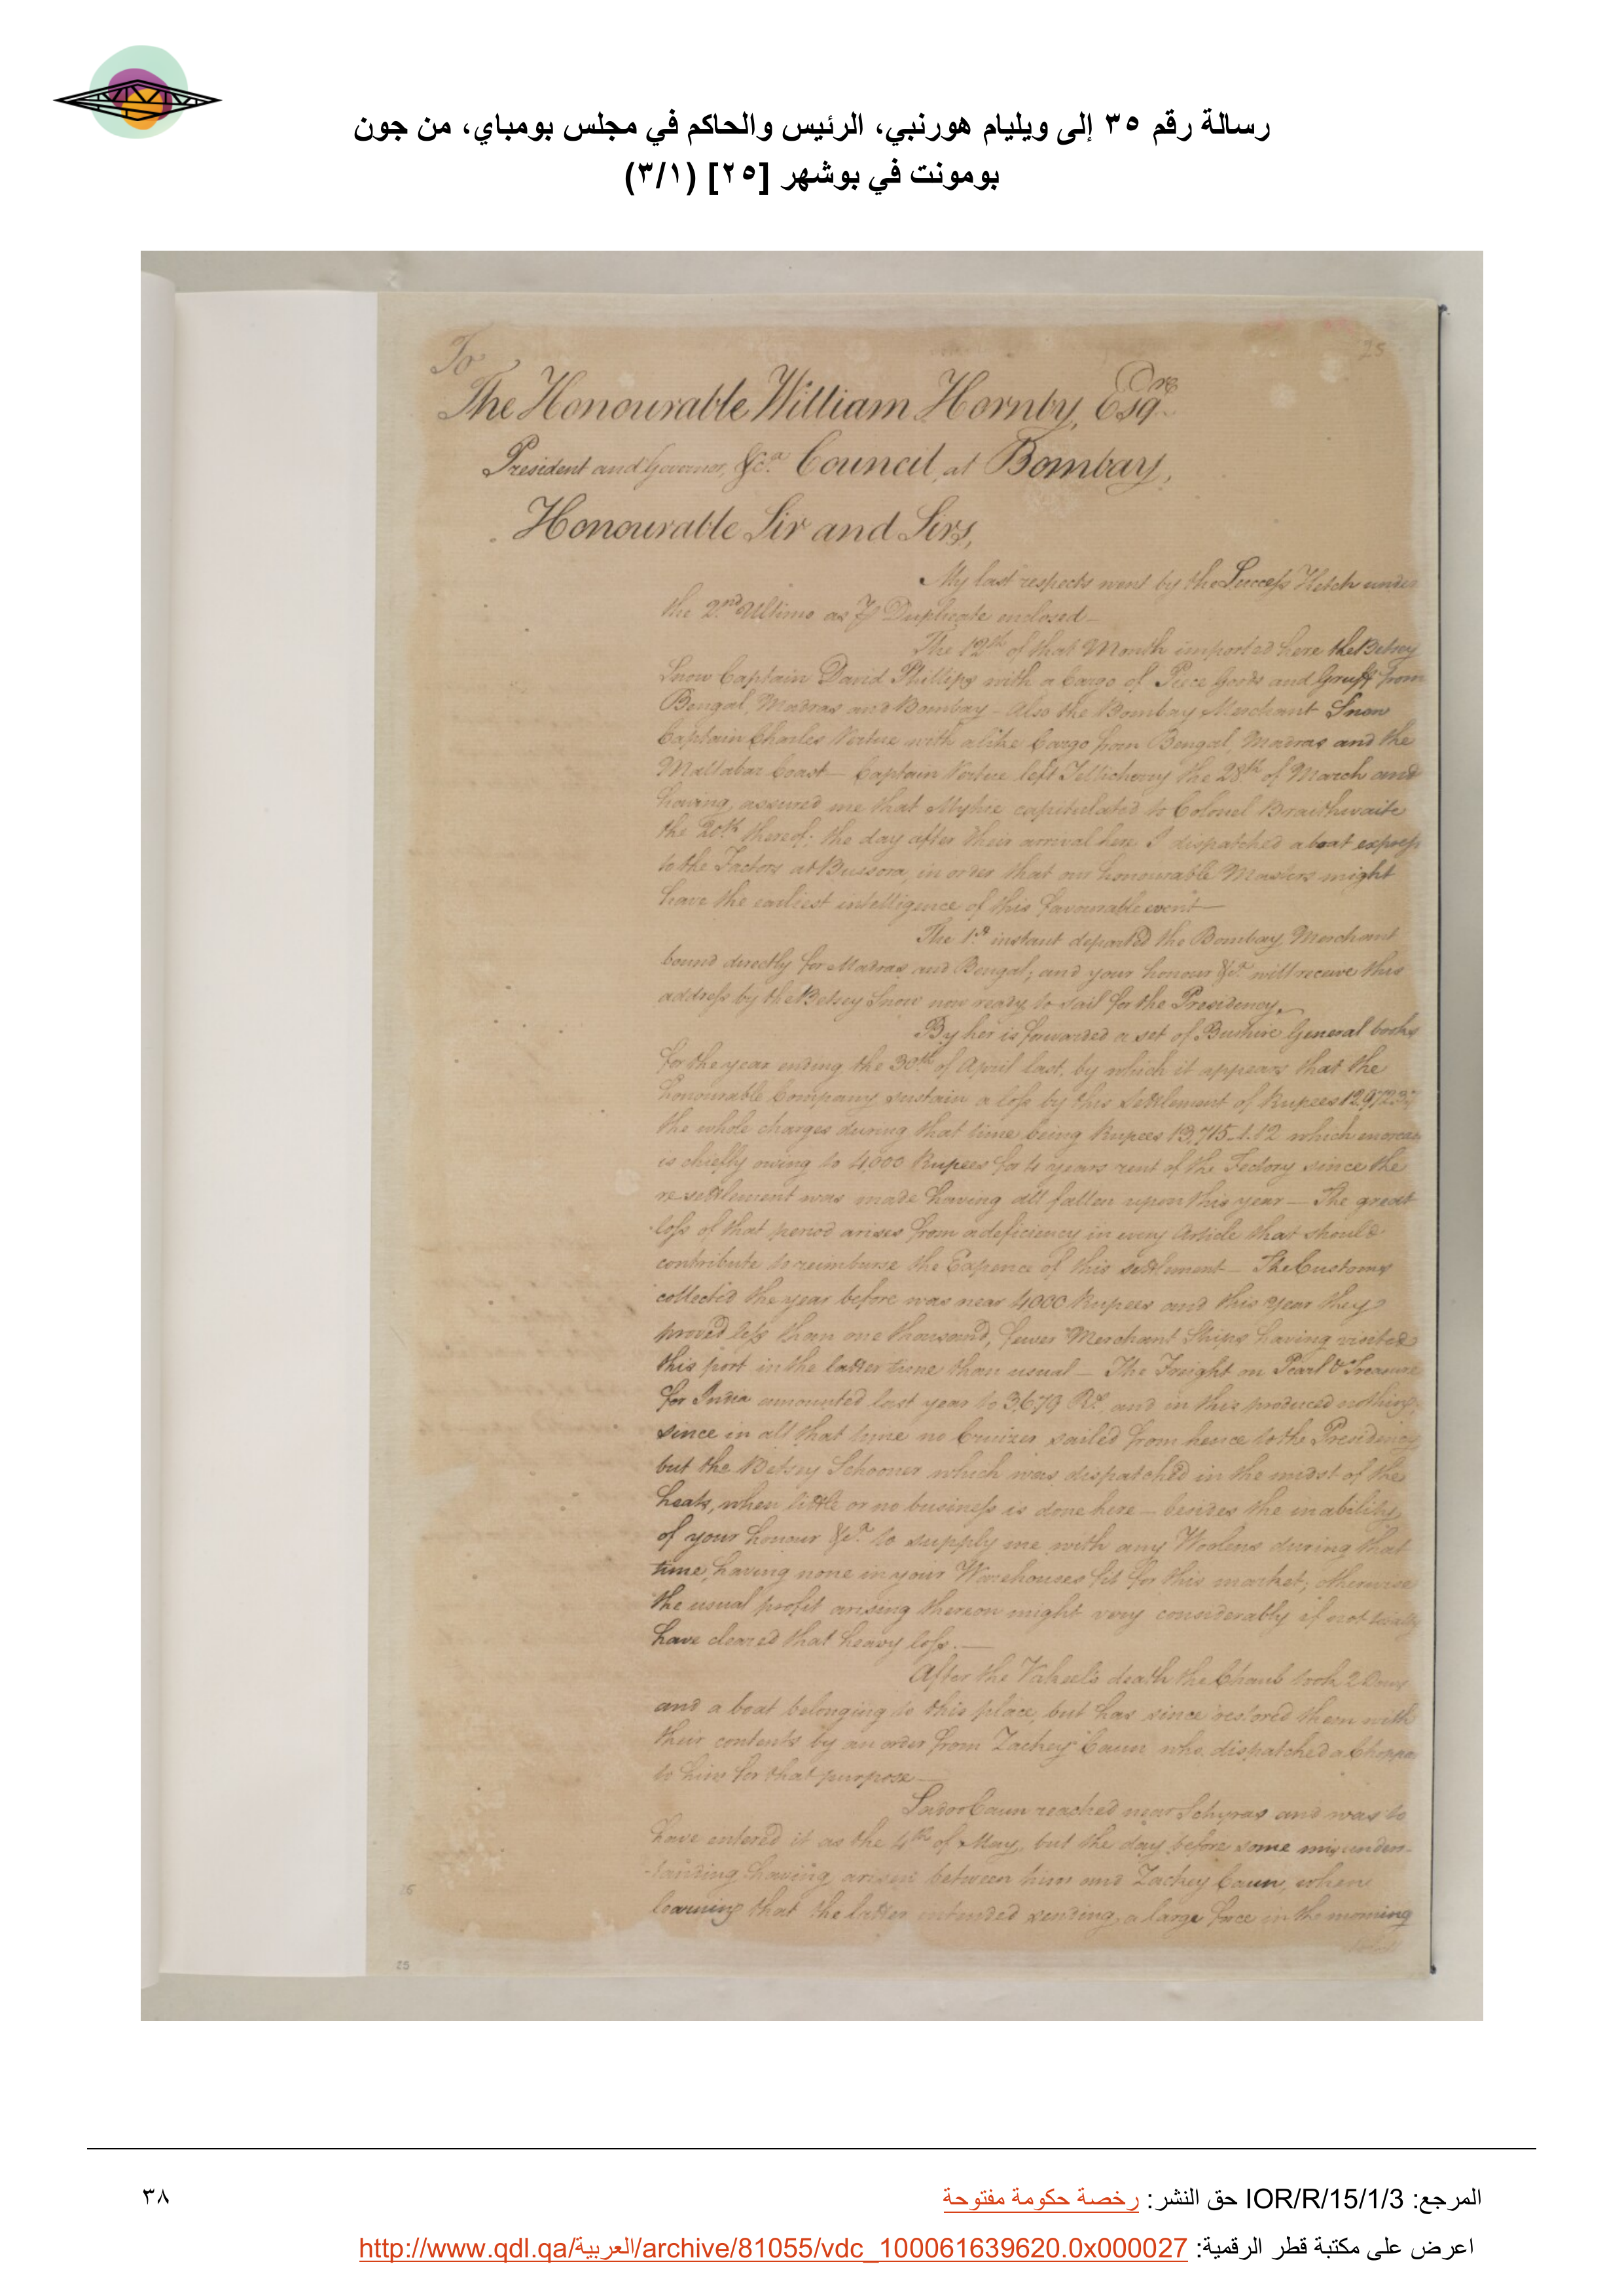 رسالة رقم ٣٥ إلى ويليام هورنبي، الرئيس والحاكم في مجلس بومباي، من جون
بومونت في بوشهر [٢٥] (٣/١)
25
To
The Honourable William Hornby, Esqre
President and Governor, &ca. Council, at Bombay,
Honourable Sir and Sirs,
My last respects went by the Success Ketch under
the 2nd Ultimo as Duplicate enclosed—
The 12th of that Month imported here the Betsey
Snow Captain David Phillips with a Cargo of Piece Goods and Gruff from
Bengal, Madras and Bombay — Also the Bombay Merchant Snow
Captain Charles Vertue with alike Cargo from Bengal, Madras and the
Mallabar Coast — Captain Vertue left Tellicherry the 28th of March and
having, assured me that Myhie capitulated to Colonel Braithwaite
the 20th thereof; the day after their arrival here I dispatched a boat express
to the Factors at Bussora, in order that our honourable Masters might
have the earliest intelligence of this favourable event—
The 1st instant departed the Bombay Merchant
bound directly for Madras and Bengal; and your honour &ca. will receive this
address by the Betsey Snow now ready to sail for the Presidency.
By her is forwarded a set of Bushire General books
for the year ending the 30th of April last, by which it appears that the
honourable Company sustain a loss by this Settlement of Rupees
the whole charges during that time being Rupees 13,715_1.12 which
is chiefly owing to 4,000 Rupees for 4 years rent of the Factory since the
re-settlement was made having all fallen upon this year — The great
loss of that period arises from a deficiency in every Article that should
contribute to reimburse the Expence of this settlement — The Customs
collected the year before was near 4000 Rupees and this year they
proved less than one thousand, fewer Merchant Ships having visited
this port in the latter time than usual — The Freight on Pearl & Treasure
for India amounted last year to 3,679 Rs. and in this produced nothing,
since in all that time no Cruizer sailed from hence to the Presidency
but the Betsey Schooner which was dispatched in the midst of the
heats, when little or no business is done here — besides the inability
of your honour &ca. to supply me with any Woolens during that
time, having none in your Warehouses fit for this market; otherwise
the usual profit arising thereon might very considerably if not totally
have cleared that heavy loss.—
After the Vakeel's death the Chaub took 2 Dows
and a boat belonging to this place, but has since restored them with
their contents by an order from Zackey Caun who dispatched a
to him for that purpose—
Sadoo Caun reached near Schyras and was to
have entered it as the 4th of May, but the day before some misunder-
-standing having arisen between him and Zackey Caun, when
learning that the latter intended sending a large force in the morning
25
المرجع: IOR/R/15/1/3 حق النشر: رخصة حكومة مفتوحة
٣٨
اعرض على مكتبة قطر الرقمية: http://www.qdl.qa/العربية/archive/81055/vdc_100061639620.0x000027